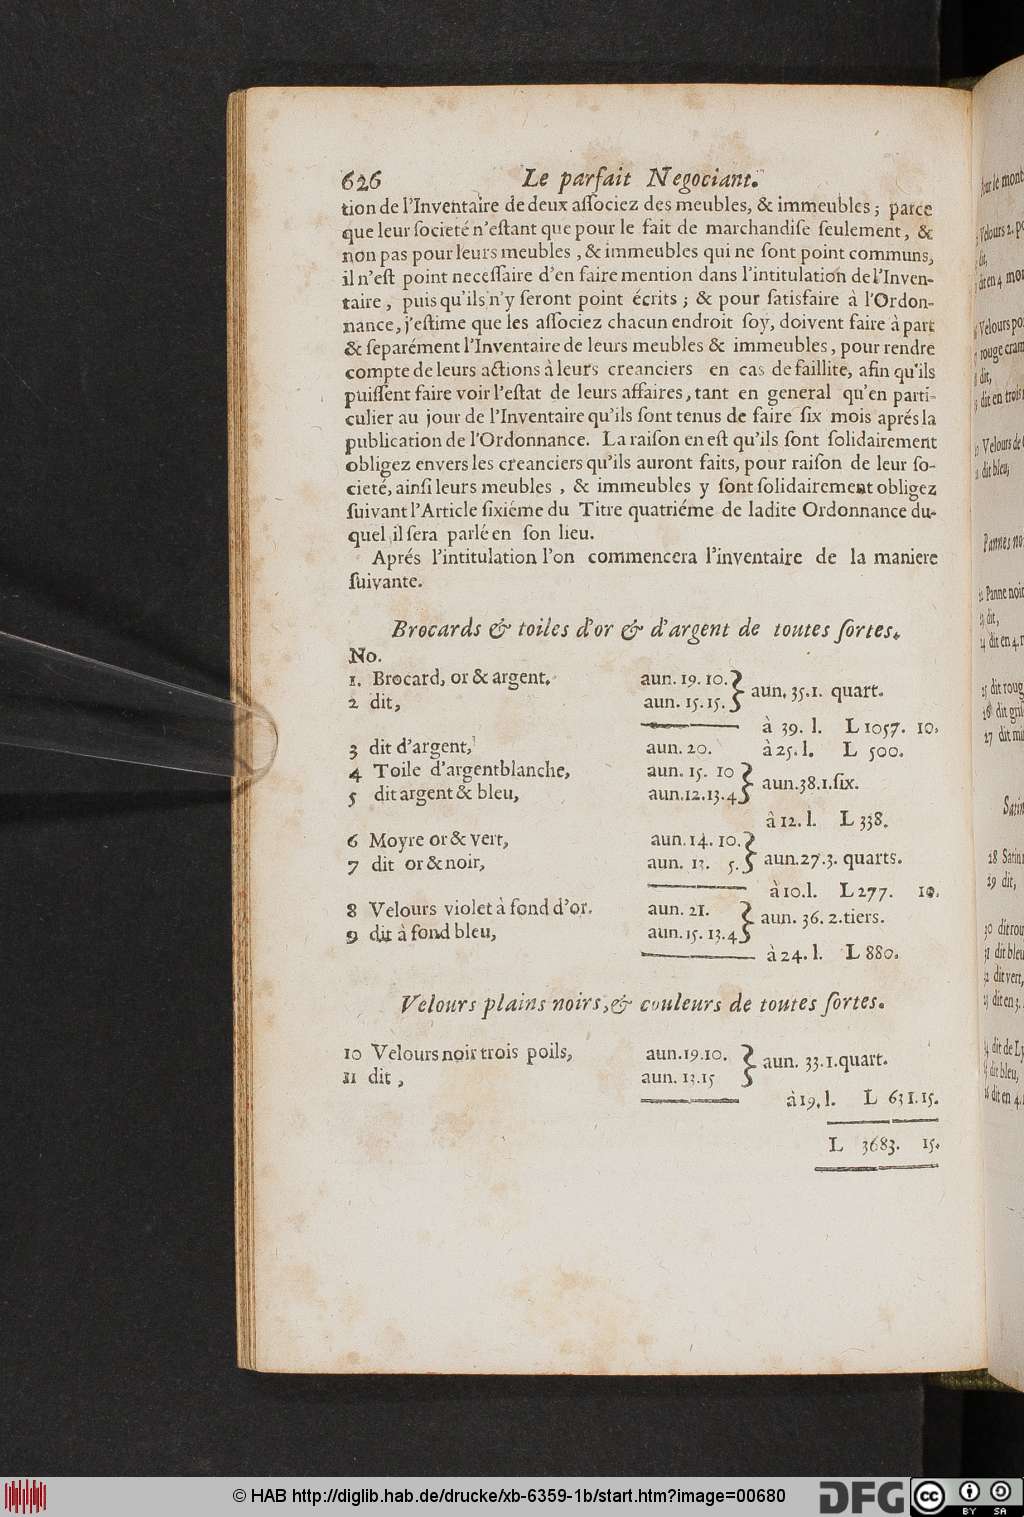 626 Le parfait Negociant.
tion de l'Inventaire de deux aſſociez des meubles, & immeubles ; parce
que leur ſocieté n'eſtant que pour le fait de marchandiſe ſeulement, &
non pas pour leurs meubles, & immeubles qui ne ſont point communs,
il n'eſt point neceſſaire d'en faire mention dans l'intitulation de l'Inven-
taire, puis qu'ils n'y ſeront point écrits ; & pour ſatisfaire à l'Ordon-
nance, j'eſtime que les aſſociez chacun endroit ſoy, doivent faire à part
& ſeparément l'Inventaire de leurs meubles & immeubles, pour rendre
compte de leurs actions à leurs creanciers en cas de faillite, afin qu'ils
puiſſent faire voir l'eſtat de leurs affaires, tant en general qu'en parti-
culier au jour de l'Inventaire qu'ils ſont tenus de faire ſix mois aprés la
publication de l'Ordonnance. La raiſon en eſt qu'ils ſont ſolidairement
obligez envers les creanciers qu'ils auront faits, pour raiſon de leur ſo-
cieté, ainſi leurs meubles, & immeubles y ſont ſolidairement obligez
ſuivant l'Article ſixiéme du Titre quatriéme de ladite Ordonnance du-
quel il ſera parlé en ſon lieu.
Aprés l'intitulation l'on commencera l'inventaire de la maniere
ſuivante.
Brocards & toiles d'or & d'argent de toutes ſortes.
No.
1. Brocard, or & argent. aun. 19. 10. } aun. 35. 1. quart.
2 dit, aun. 15. 15.
à 39. l. L 1057. 10.
3 dit d'argent, aun. 20. à 25. l. L 500.
4 Toile d'argent blanche, aun. 15. 10 } aun. 38. 1. ſix.
5 dit argent & bleu, aun. 12. 13. 4
à 12. l. L 338.
6 Moyre or & vert, aun. 14. 10. } aun. 27. 3. quarts.
7 dit or & noir, aun. 13. 5.
à 10. l. L 277. 10.
8 Velours violet à fond d'or. aun. 21. } aun. 36. 2. tiers.
9 dit à fond bleu, aun. 15. 13. 4
à 24. l. L 880.
Velours plains noirs, & couleurs de toutes ſortes.
10 Velours noir trois poils, aun. 19. 10. } aun. 33. 1. quart.
11 dit, aun. 13. 15
à 19. l. L 631. 15.
L 3683. 15.
Velours 2.
dit,
dit en 4
Velours
rouge
dit,
dit en trois
Velours de
dit bleu,
Pannes
Panne
dit,
24 dit en 4.
25 dit
26 dit
27 dit
28 Satin
29 dit,
30 dit
31 dit bleu
32 dit vert,
dit en 3.
dit de
dit bleu,
dit en 4.
© HAB http://diglib.hab.de/drucke/xb-6359-1b/start.htm?image=00680
DFG
cc
BY SA